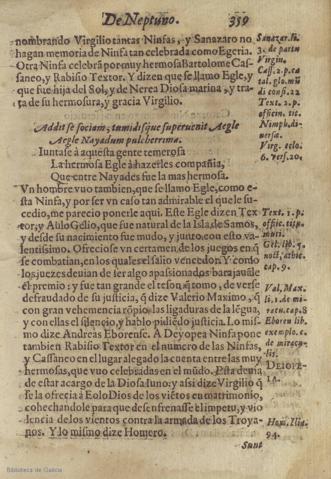 De Neptuno. 359
nombrando Virgilio tantas Ninfas, y Sanazaro no
hagan memoria de Ninfa tan celebrada como Egeria.
Otra Ninfa celebrã por muy hermosa Bartolome Cas-
saneo, y Rabisio Textor. Y dizen que se llamo Egle, y
que fue hija del Sol, y de Nerea Diosa marina, y tra-
ta de su hermosura, y gracia Virgilio.
Addit se sociam, tumidisque superuenit Aegle
Aegle Nayadum pulcherrima.
Iuntase à aquesta gente temerosa
La hermosa Egle à hazerles compañia,
Que entre Nayades fue la mas hermosa.
Vn hombre vuo tambien, que se llamo Egle, como e-
sta Ninfa, y por ser vn caso tan admirable el que le su-
cedio, me parecio ponerle aqui. Este Egle dizen Tex
tor, y Aulo Gelio, que fue natural de la Isla de Samos,
y desde su nacimiento fue mudo, y junto con esto va-
lentissimo. Ofreciose vn certamen, de los juegos en q̃
se combatian, en los quales el salio vencedor. Y como
los juezes deuian de ser algo apasionados barajauãle
el premio: y fue tan grande el teson, q̃ tomo, de verse
defraudado de su justicia, q̃ dize Valerio Maximo, q̃
con gran vehemencia rõpio las ligaduras de la lẽgua,
y con ellas el silencio, y hablo pidiẽdo justicia. Lo mis-
mo dize Andreas Eborense. A Deyopea Ninfa pone
tambien Rabisio Textor en el numero de las Ninfas,
y Cassaneo en el lugar alegado la cuenta entre las muy
hermosas, que vuo celebradas en el mũdo. Esta deuia
de estar acargo de la Diosa Iuno: y assi dize Virgilio q̃
se la ofrecia à Eolo Dios de los viẽtos en matrimonio,
cohechandole para que desenfrenasse el impetu, y vio
lencia de los vientos contra la armada de los Troya-
nos. Y lo mismo dize Homero.
Sunt
Sanazar. li.
3. de partu
Virgin.
Cass. 2. p. ca
tal. glo. mũ
di consi. 22
Text. 2. p.
officin. tit.
Nimph. di-
uersa.
Virg. eclo.
6. vers. 20.
Text. 1. p.
offic. tit.
muti.
Gel. lib. 5.
noct. athic.
cap. 9.
Val. Max.
li. 1. de mi-
racu. cap. 8
Eboren. lib.
exemplo. c.
de miracu-
lis.
DEIOPE-
IA.
Homi. Ilia.
Biblioteca de Galicia